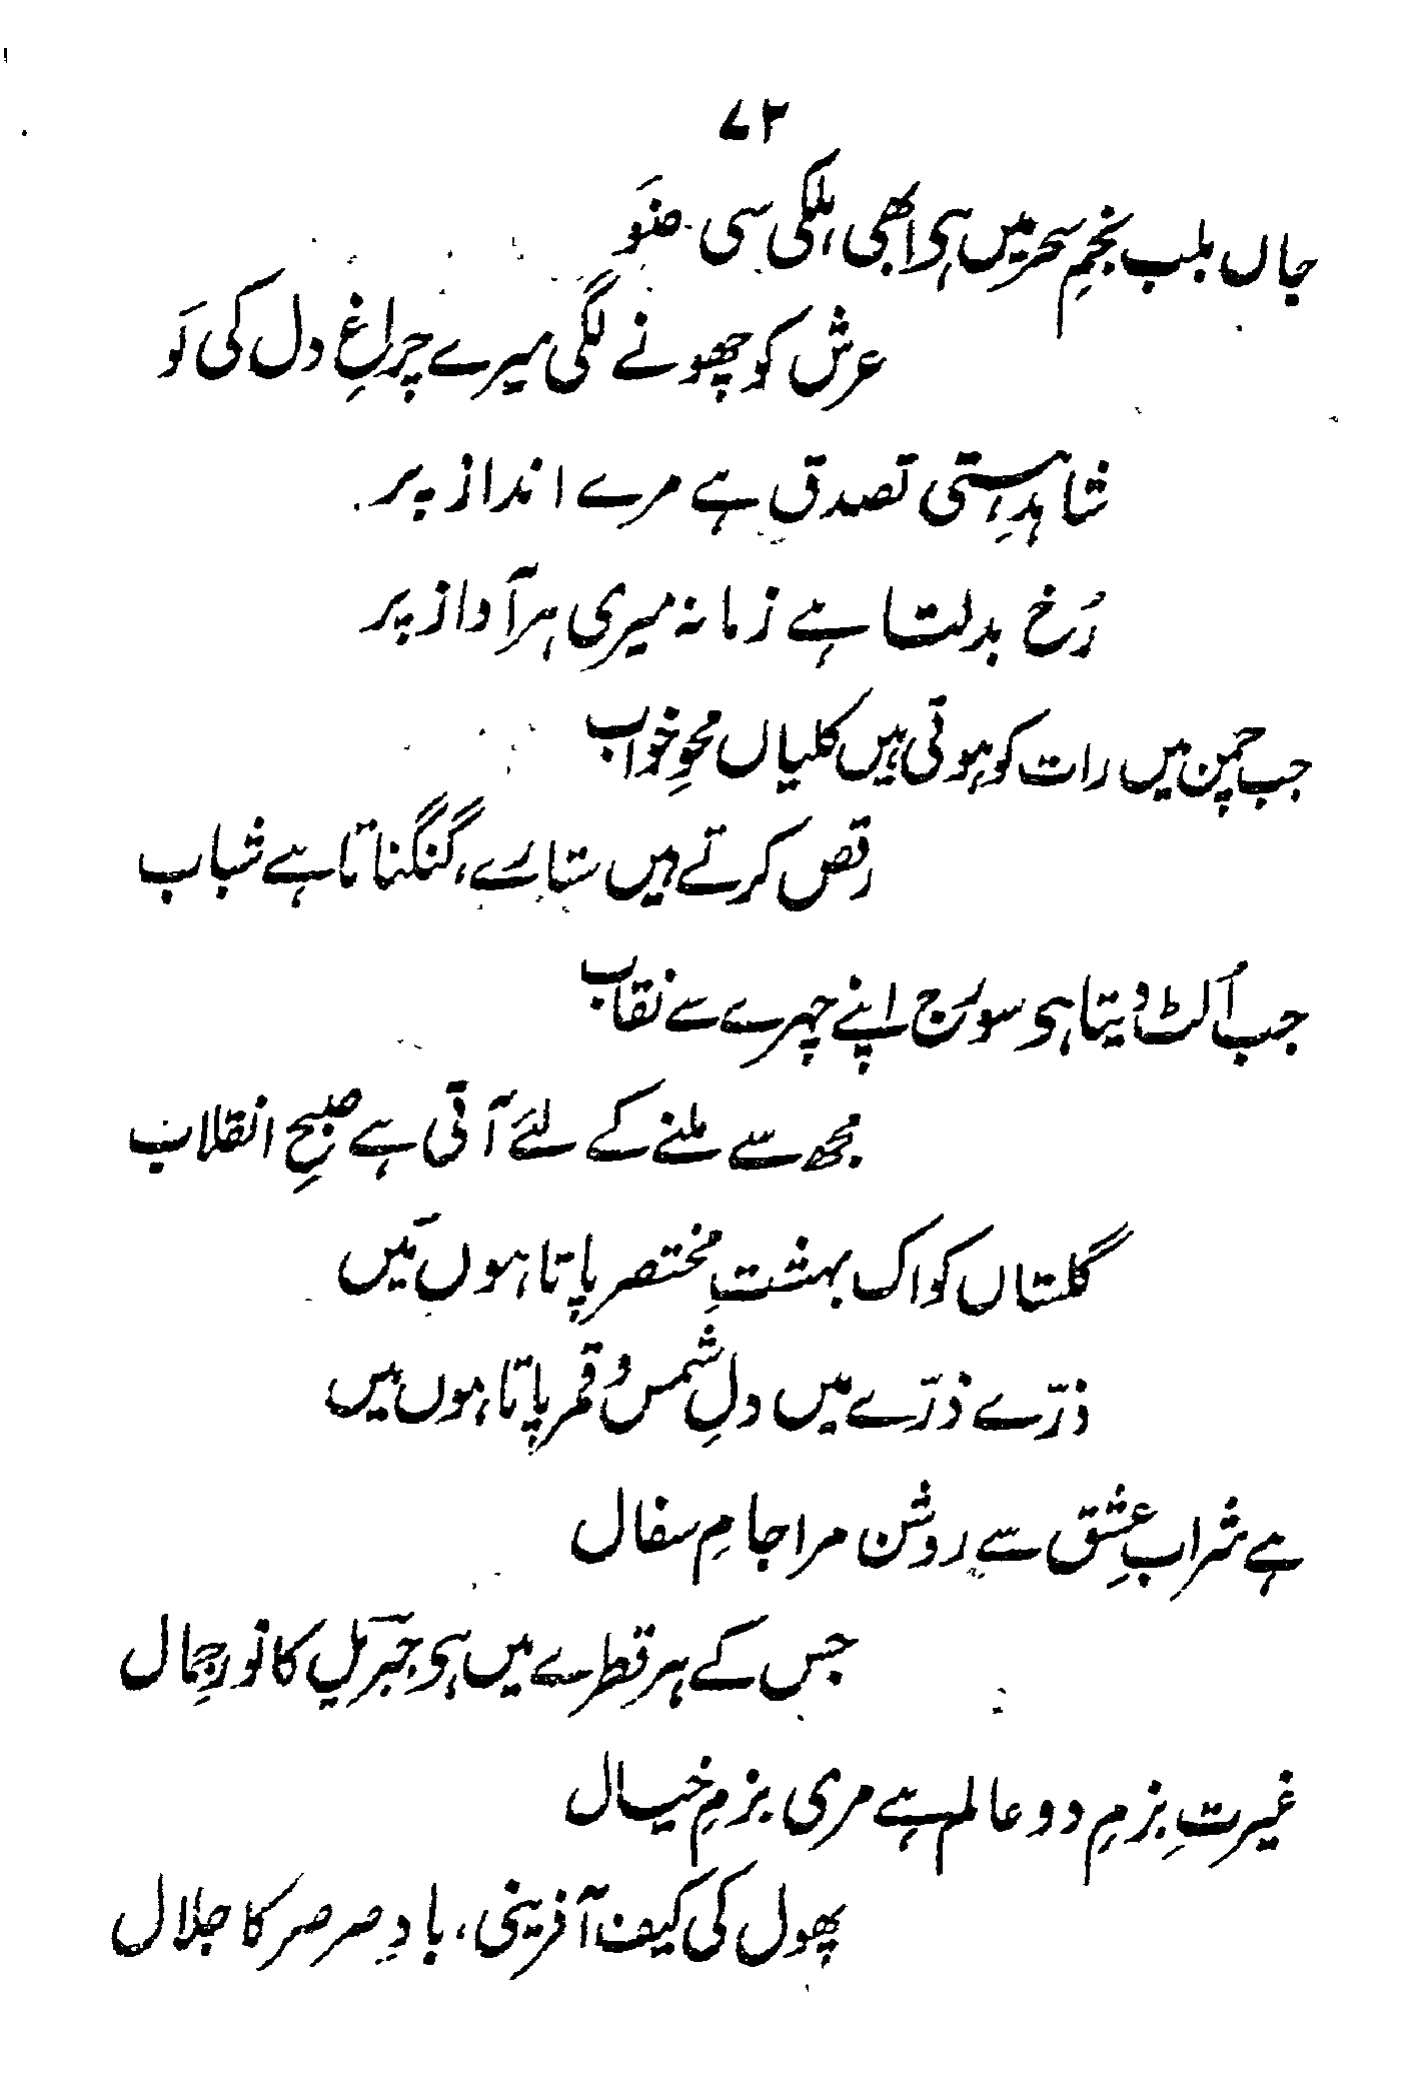 ۷۲
جاں بلب نجمِ سحر میں ہی ابھی ہلکی سی ضَو
عرش کو چھونے لگی میرے چراغِ دل کی لَو
شاہدِ ہستی تصدق ہے مرے انداز پر
رُخ بدلتا ہے زمانہ میری ہر آواز پر
جب چمن میں رات کو ہوتی ہیں کلیاں محوِ خواب
رقص کرتے ہیں ستارے، گنگناتا ہے شباب
جب اُلٹ دیتا ہی سورج اپنے چہرے سے نقاب
مجھ سے ملنے کے لئے آتی ہے صبحِ انقلاب
گلستاں کو اک بہشتِ مختصر پاتا ہوں مَیں
ذرّے ذرّے میں دلِ شمس و قمر پاتا ہوں میں
ہے شرابِ عشق سے روشن مرا جامِ سفال
جس کے ہر قطرے میں ہی جبرَیل کا نورِ جمال
غیرتِ بزمِ دو عالم ہے مری بزمِ خیال
پھول کی کیف آفرینی، بادِ صرصر کا جلال